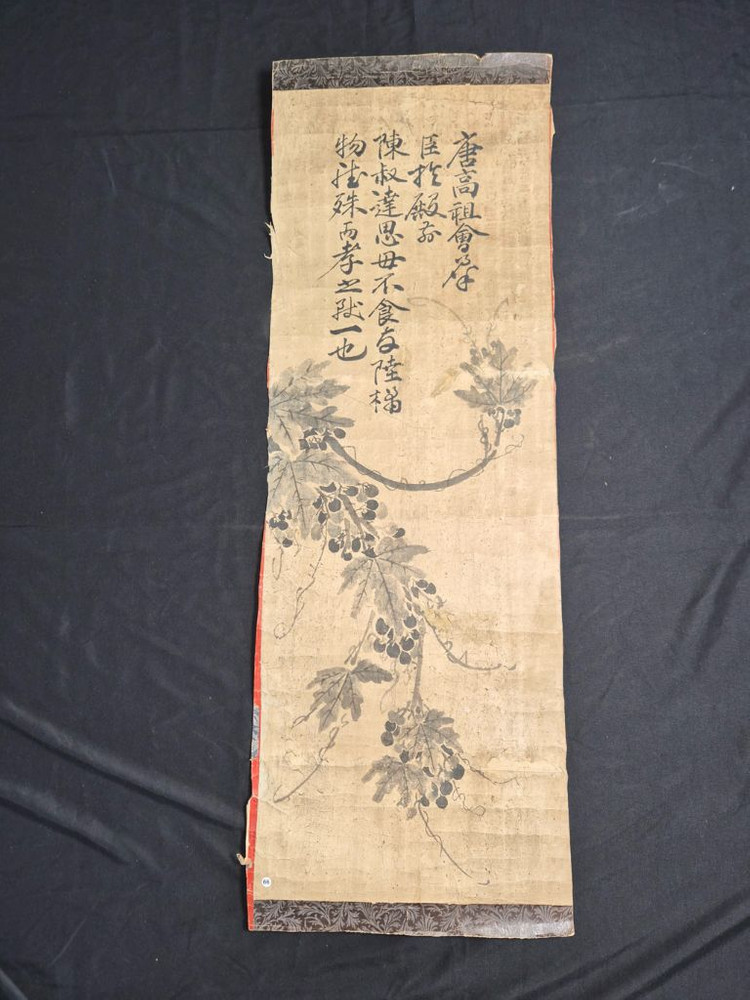 唐高祖會群
臣於殿前
陳叔達思母不食与陸橘
物雖殊而孝之一也